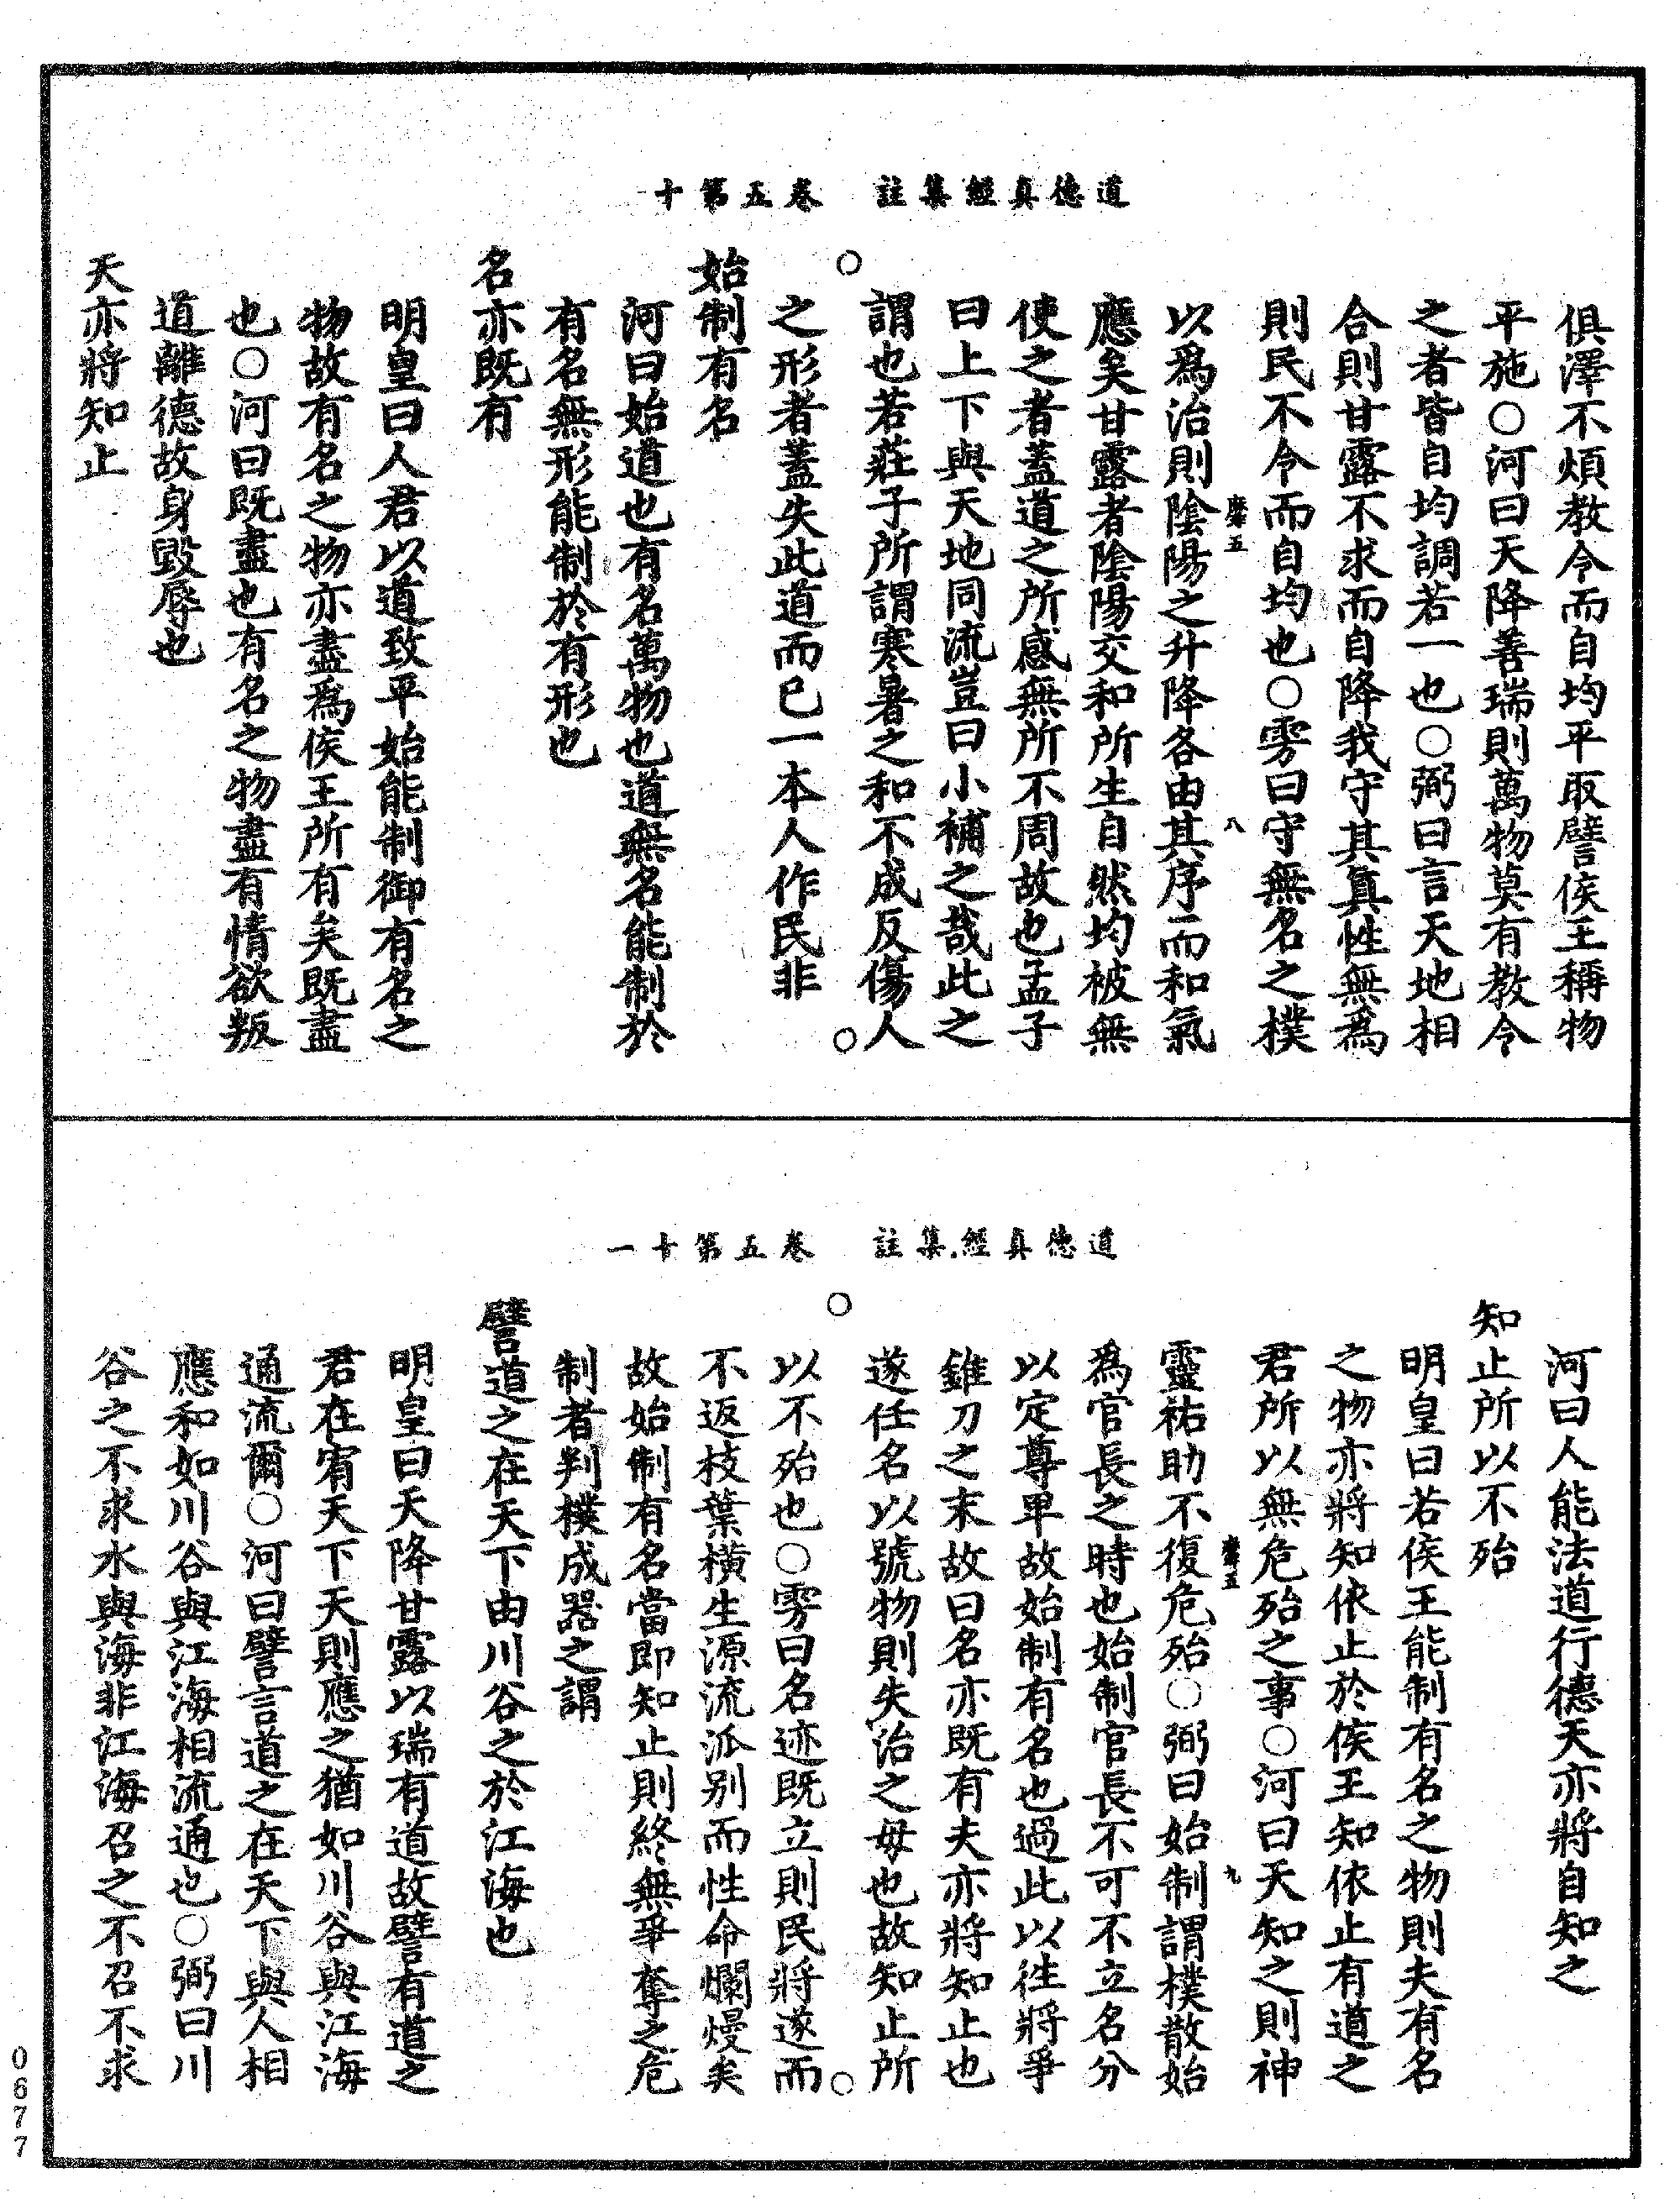 道德真經集註　卷五第十
俱澤不煩教令而自均平取譬侯王稱物
平施○河曰天降善瑞則萬物莫有教令
之者皆自均調若一也○弼曰言天地相
合則甘露不求而自降我守其真性無爲
則民不令而自均也○雱曰守無名之樸
五　八
以爲治則陰陽之升降各由其序而和氣
應矣甘露者陰陽交和所生自然均被無
使之者蓋道之所感無所不周故也孟子
曰上下與天地同流豈曰小補之哉此之
謂也若莊子所謂寒暑之和不成反傷人
之形者蓋失此道而已一本人作民非
始制有名
河曰始道也有名萬物也道無名能制於
有名無形能制於有形也
名亦既有
明皇曰人君以道致平始能制御有名之
物故有名之物亦盡爲侯王所有矣既盡
也○河曰既盡也有名之物盡有情欲叛
道離德故身毀辱也
天亦將知止
道德真經集註　卷五第十一
河曰人能法道行德天亦將自知之
知止所以不殆
明皇曰若侯王能制有名之物則夫有名
之物亦將知依止於侯王知依止有道之
君所以無危殆之事○河曰天知之則神
五　九
靈祐助不復危殆○弼曰始制謂樸散始
爲官長之時也始制官長不可不立名分
以定尊卑故始制有名也過此以往將爭
錐刀之末故曰名亦既有夫亦將知止也
遂任名以號物則失治之母也故知止所
以不殆也○雱曰名迹既立則民將遂而
不返枝葉橫生源流派别而性命爛熳矣
故始制有名當即知止則終無爭奪之危
制者判樸成器之謂
譬道之在天下由川谷之於江海也
明皇曰天降甘露以瑞有道故譬有道之
君在宥天下天則應之猶如川谷與江海
通流爾○河曰譬言道之在天下與人相
應和如川谷與江海相流通也○弼曰川
谷之不求水與海非江海召之不召不求
0677